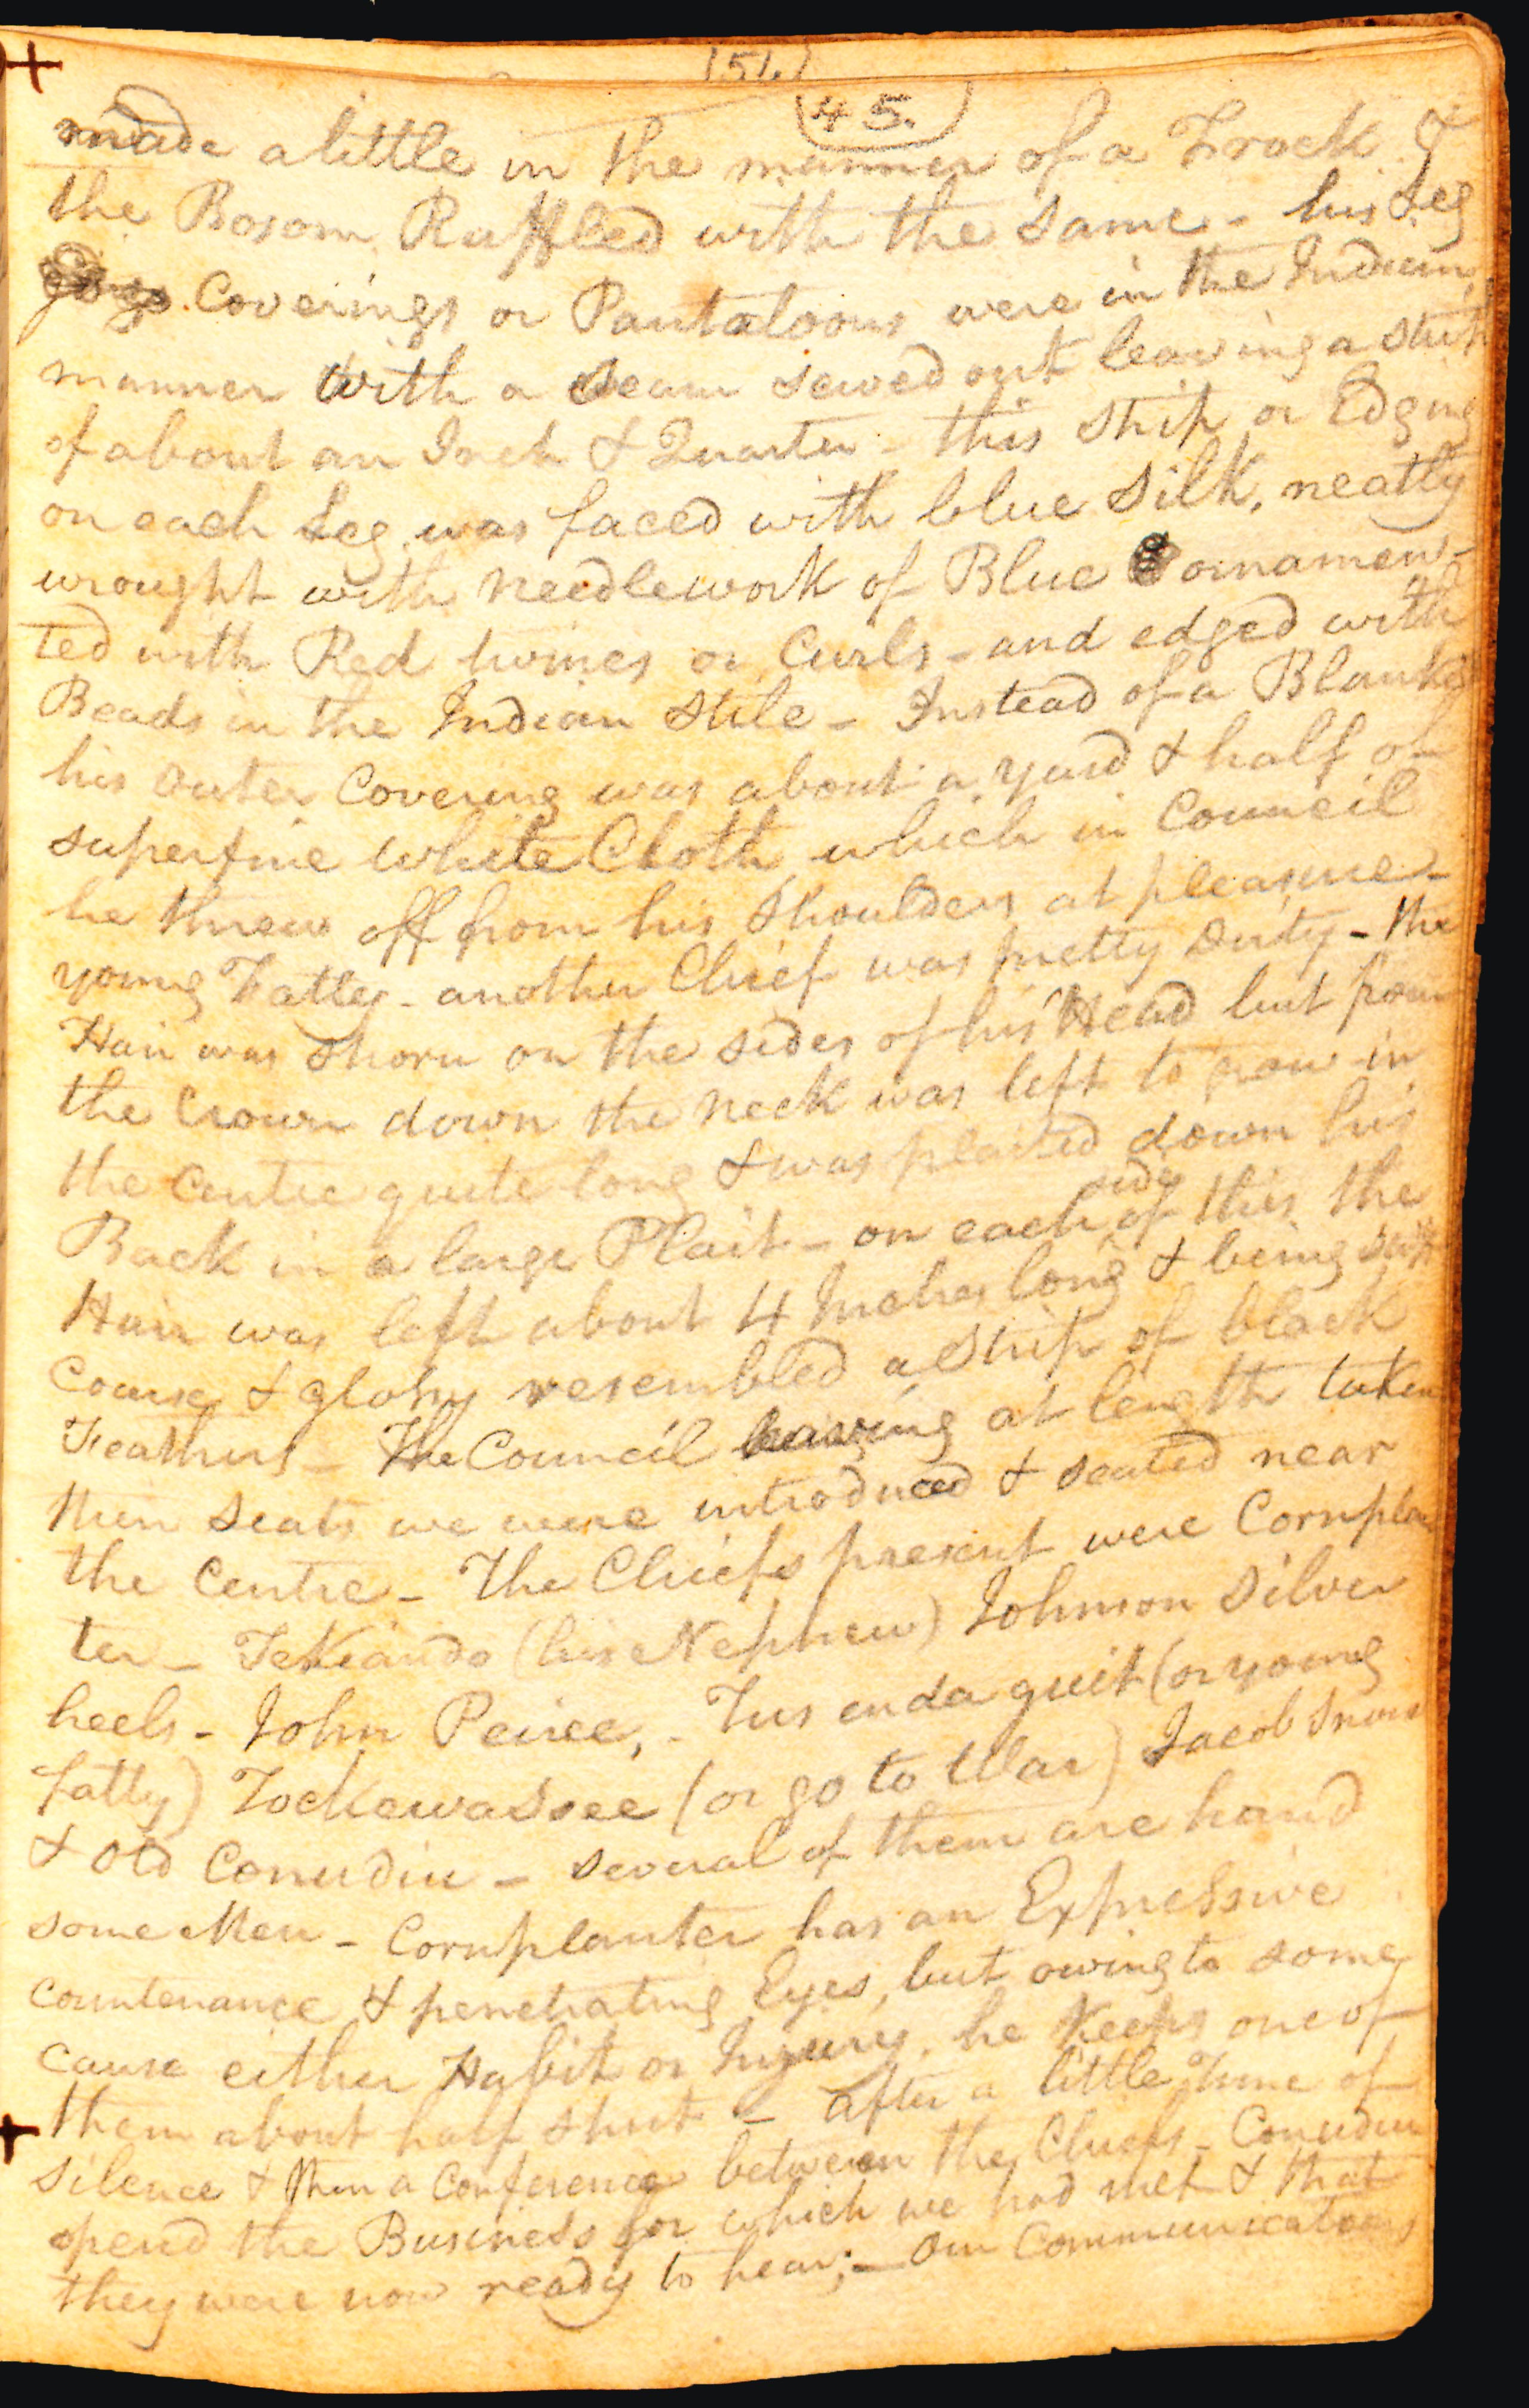 (51.)
(45.)
made a little in the manner of a Frock &
the Bosom Ruffled with the same - his Leg
Coverings or Pantaloons were in the Indian
manner with a Seam sewed out leaving a strip
of about an Inch & Quarter - this strip or Edging
on each Leg was faced with blue Silk, neatly
wrought with needlework of Blue ornamen-
ted with Red twines or Curls - and edged with
Beads in the Indian Stile - Instead of a Blanket
his outer Covering was about a yard & half of
superfine white Cloth which in Council
he threw off from his Shoulders at pleasure -
young Fatty - another Chief was pretty Dirty - the
Hair was shorn on the sides of his Head but from
the Crown down the neck was left to grow in
the Centre quite long & was plaited down his
Back in a large Plait - on each side of this the
Hair was left about 4 Inches long & being stiff
Coarse & glossy resembled a Strip of black
Feathers - The Council having at length taken
their Seats we were introduced & seated near
the Centre - The Chiefs present were Cornplan
ter - Tekiando (his Nephew) Johnson Silver
heels - John Peirce, - Tus en da quit (or young
fatty) Tockewassee (or go to War) Jacob Snow
& Old Conudiu - several of them are hand
some Men - Cornplanter has an Expressive
Countenance & penetrating Eyes, but owing to some
cause either Habit or Injury, he Keeps one of
them about half shut - after a little Time of
Silence & then a Conference between the Chiefs - Conudiu
opend the Business for which we had met & that
they were now ready to hear; - Our Communications